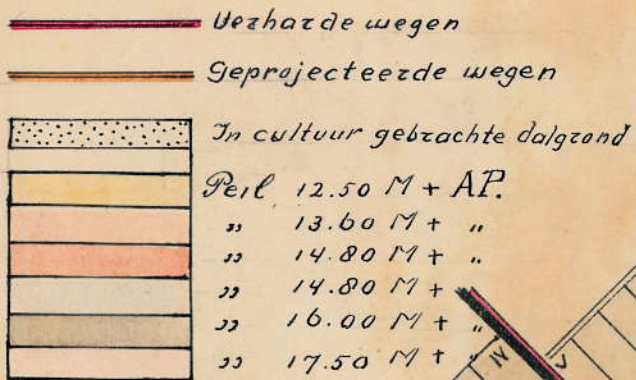 Verharde wegen
Geprojecteerde wegen
In cultuur gebrachte dalgrond
Peil 12.50 M + AP.
„ 13.60 M + „
„ 14.80 M + „
„ 14.80 M + „
„ 16.00 M + „
„ 17.50 M + „
IV V